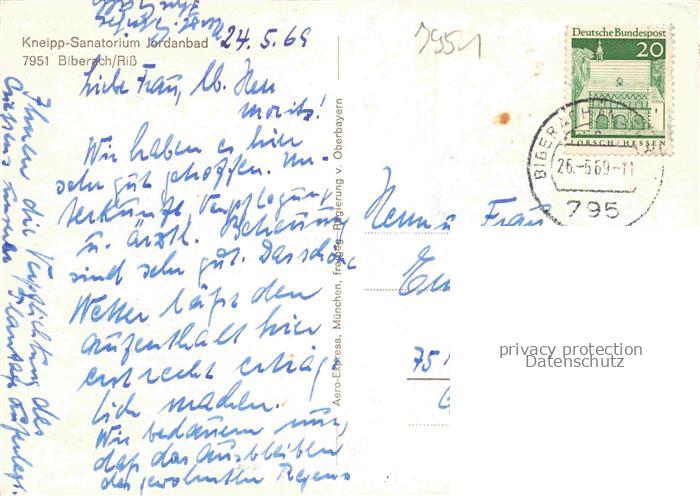 Kneipp-Sanatorium Jordanbad
7951 Biberach/Riß
24.5.69
Liebe Frau, lb. Herr
Moritz!
Wir haben es hier
sehr gut getroffen. Un-
terkunft, Verpflegung
u. ärztl. Betreuung
sind sehr gut. Das schöne
Wetter läßt den
Aufenthalt hier
erst recht erträg-
lich machen.
Wir bedauern nur,
daß das Ausbleiben
des gewohnten Regens
Ihnen die Verpflichtung des
Giessens unserer auferlegt.
Aero-Express, München, freigeg. Regierung v. Oberbayern
7951
Deutsche Bundespost
20
LORSCH/HESSEN
BIBERACH
26.-5.69-11
795
Herrn u. Frau
75
privacy protection
Datenschutz